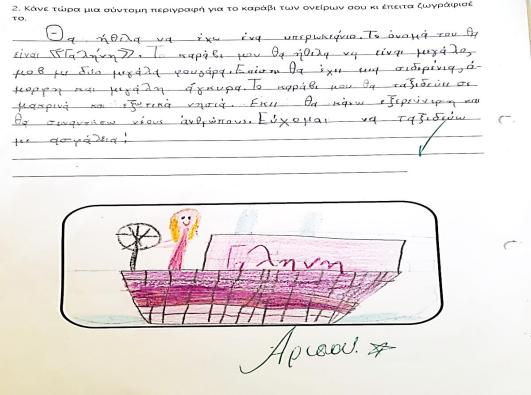 2. Κάνε τώρα μια σύντομη περιγραφή για το καράβι των ονείρων σου κι έπειτα ζωγράφισέ
το.
Θα ήθελα να έχω ένα υπερωκεάνιο. Το όνομά του θα
είναι «Γαλήνη». Το καράβι μου θα ήθελα να είναι μεγάλο,
μοβ με δύο μεγάλα φουγάρα. Επίσης θα έχει μια σιδερένια, ό-
μορφη και μεγάλη άγκυρα. Το καράβι μου θα ταξιδεύει σε
μακρινά και εξωτικά νησιά. Εκεί θα κάνω εξερεύνηση και
θα συναντήσω νέους ανθρώπους. Εύχομαι να ταξιδεύω
με ασφάλεια!
Γαλήνη
Άριστα!